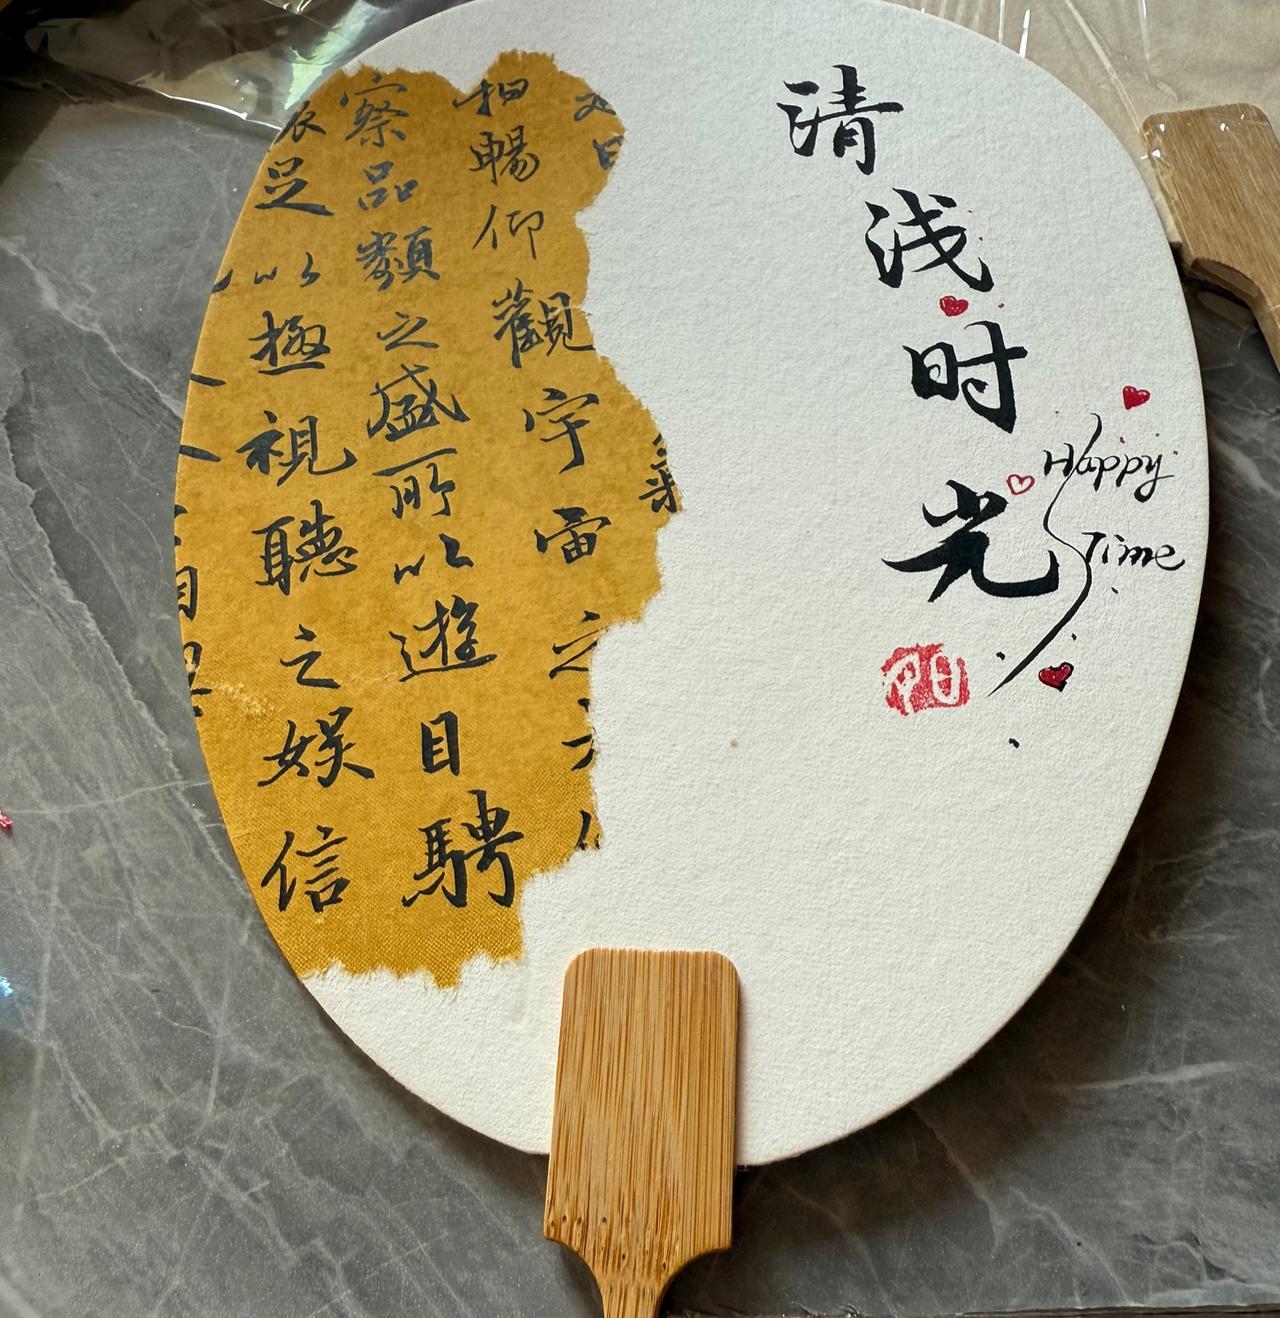 清浅时光
Happy
Time
暢仰觀宇宙之
察品類之盛所以遊目騁
足以極視聽之娛信